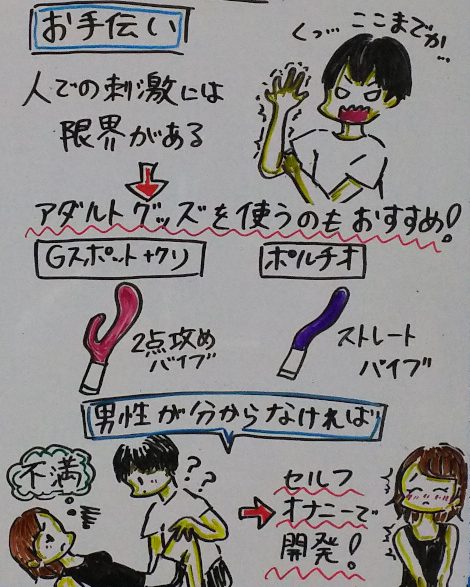 お手伝い
くっ… ここまでか…
人での刺激には
限界がある
アダルトグッズを使うのもおすすめ!
Gスポット+クリ
ポルチオ
2点攻め
バイブ
ストレート
バイブ
男性が分からなければ
不満
??
セルフ
オナニーで
開発!